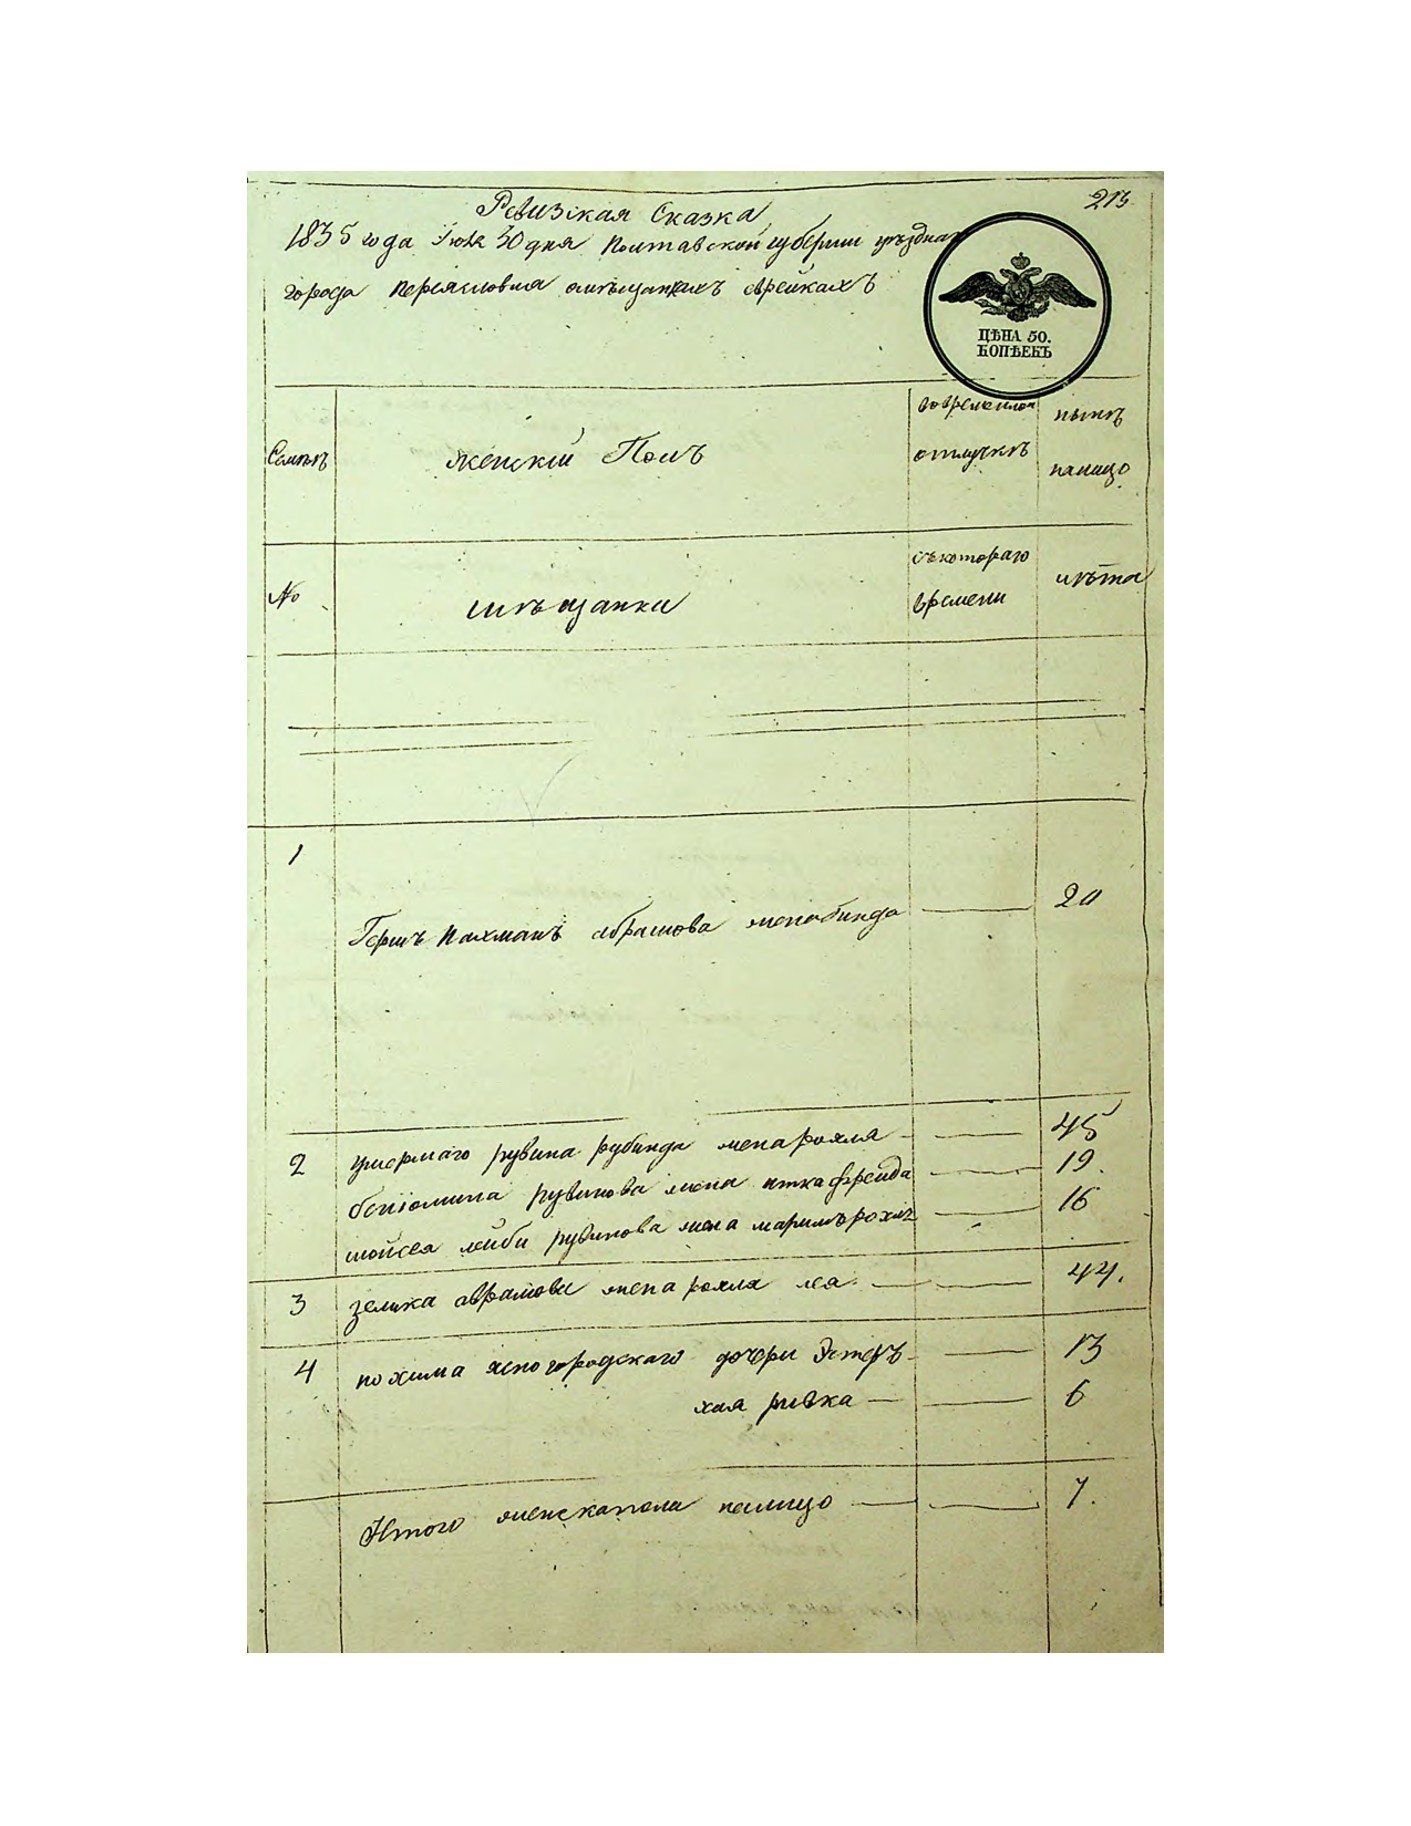 213
Ревизская Сказка
1835 года Июля 30 дня Полтавской губернии уѣзднаго
города Переясловля омѣщанкахъ еврейкахъ
ЦѢНА 50.
КОПѢЕКЪ
Семьи
женскій Полъ
вовременной
отлучкѣ
нынѣ
налицо
№
мѣщанки
съкотораго
времени
лѣта
1
Гершъ Нахмана абрамова женабинда 20
2
умершаго рувина рубинда женарохля 45
бениомина рувинова жена иткафрейда 19.
мойсея лейби рувинова жена маримърохля 16
3 зелика аврамова жена рохля лея 44.
4 нохима ясногородскаго дочери Эстеръ 13
хая ривка 6
Итого женскапола налицо 7.